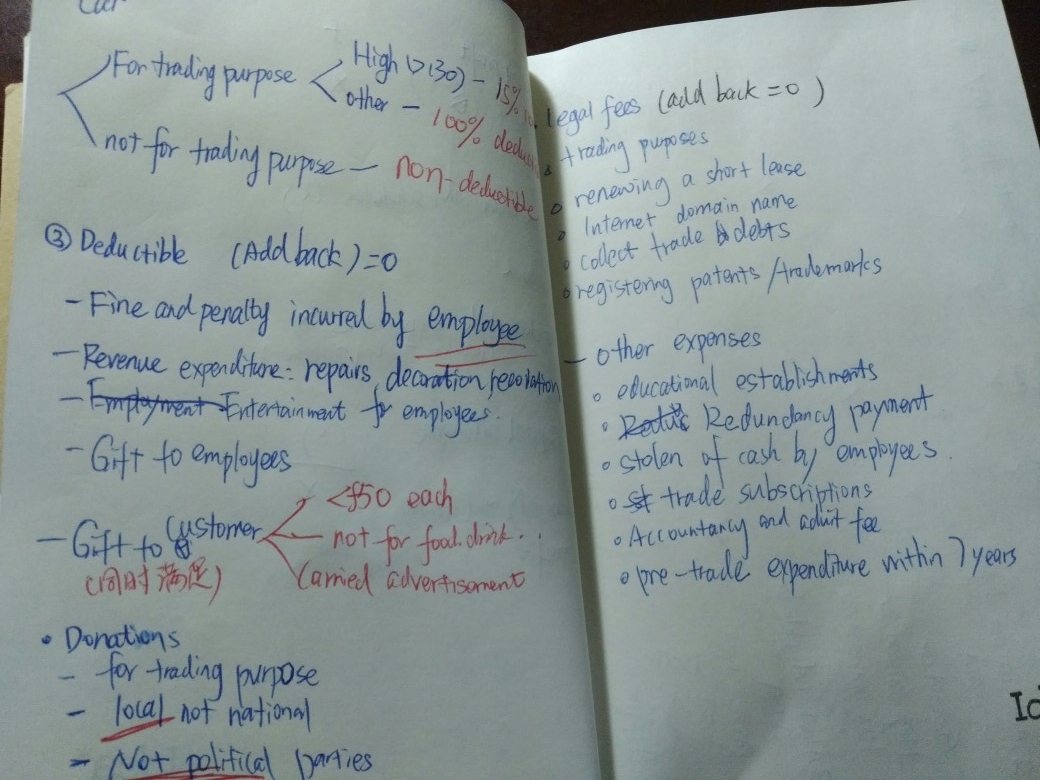 Car
For trading purpose
High (>130) - 15%
other - 100% deduc
not for trading purpose - non-deductible
③ Deductible (Add back)=0
- Fine and penalty incurred by employee
- Revenue expenditure: repairs, decoration,
- Entertainment for employees.
- Gift to employees
- Gift to customer
<£50 each
not for food. drink...
Carried advertisement
(同时满足)
• Donations
- for trading purpose
- local not national
- Not political parties
legal fees (add back=0)
trading purposes
renewing a short lease
Internet domain name
collect trade debts
registering patents/trademarks
- other expenses
educational establishments
Redundancy payment
stolen of cash by employees.
trade subscriptions
Accountancy and aduit fee
pre-trade expenditure within 7 years